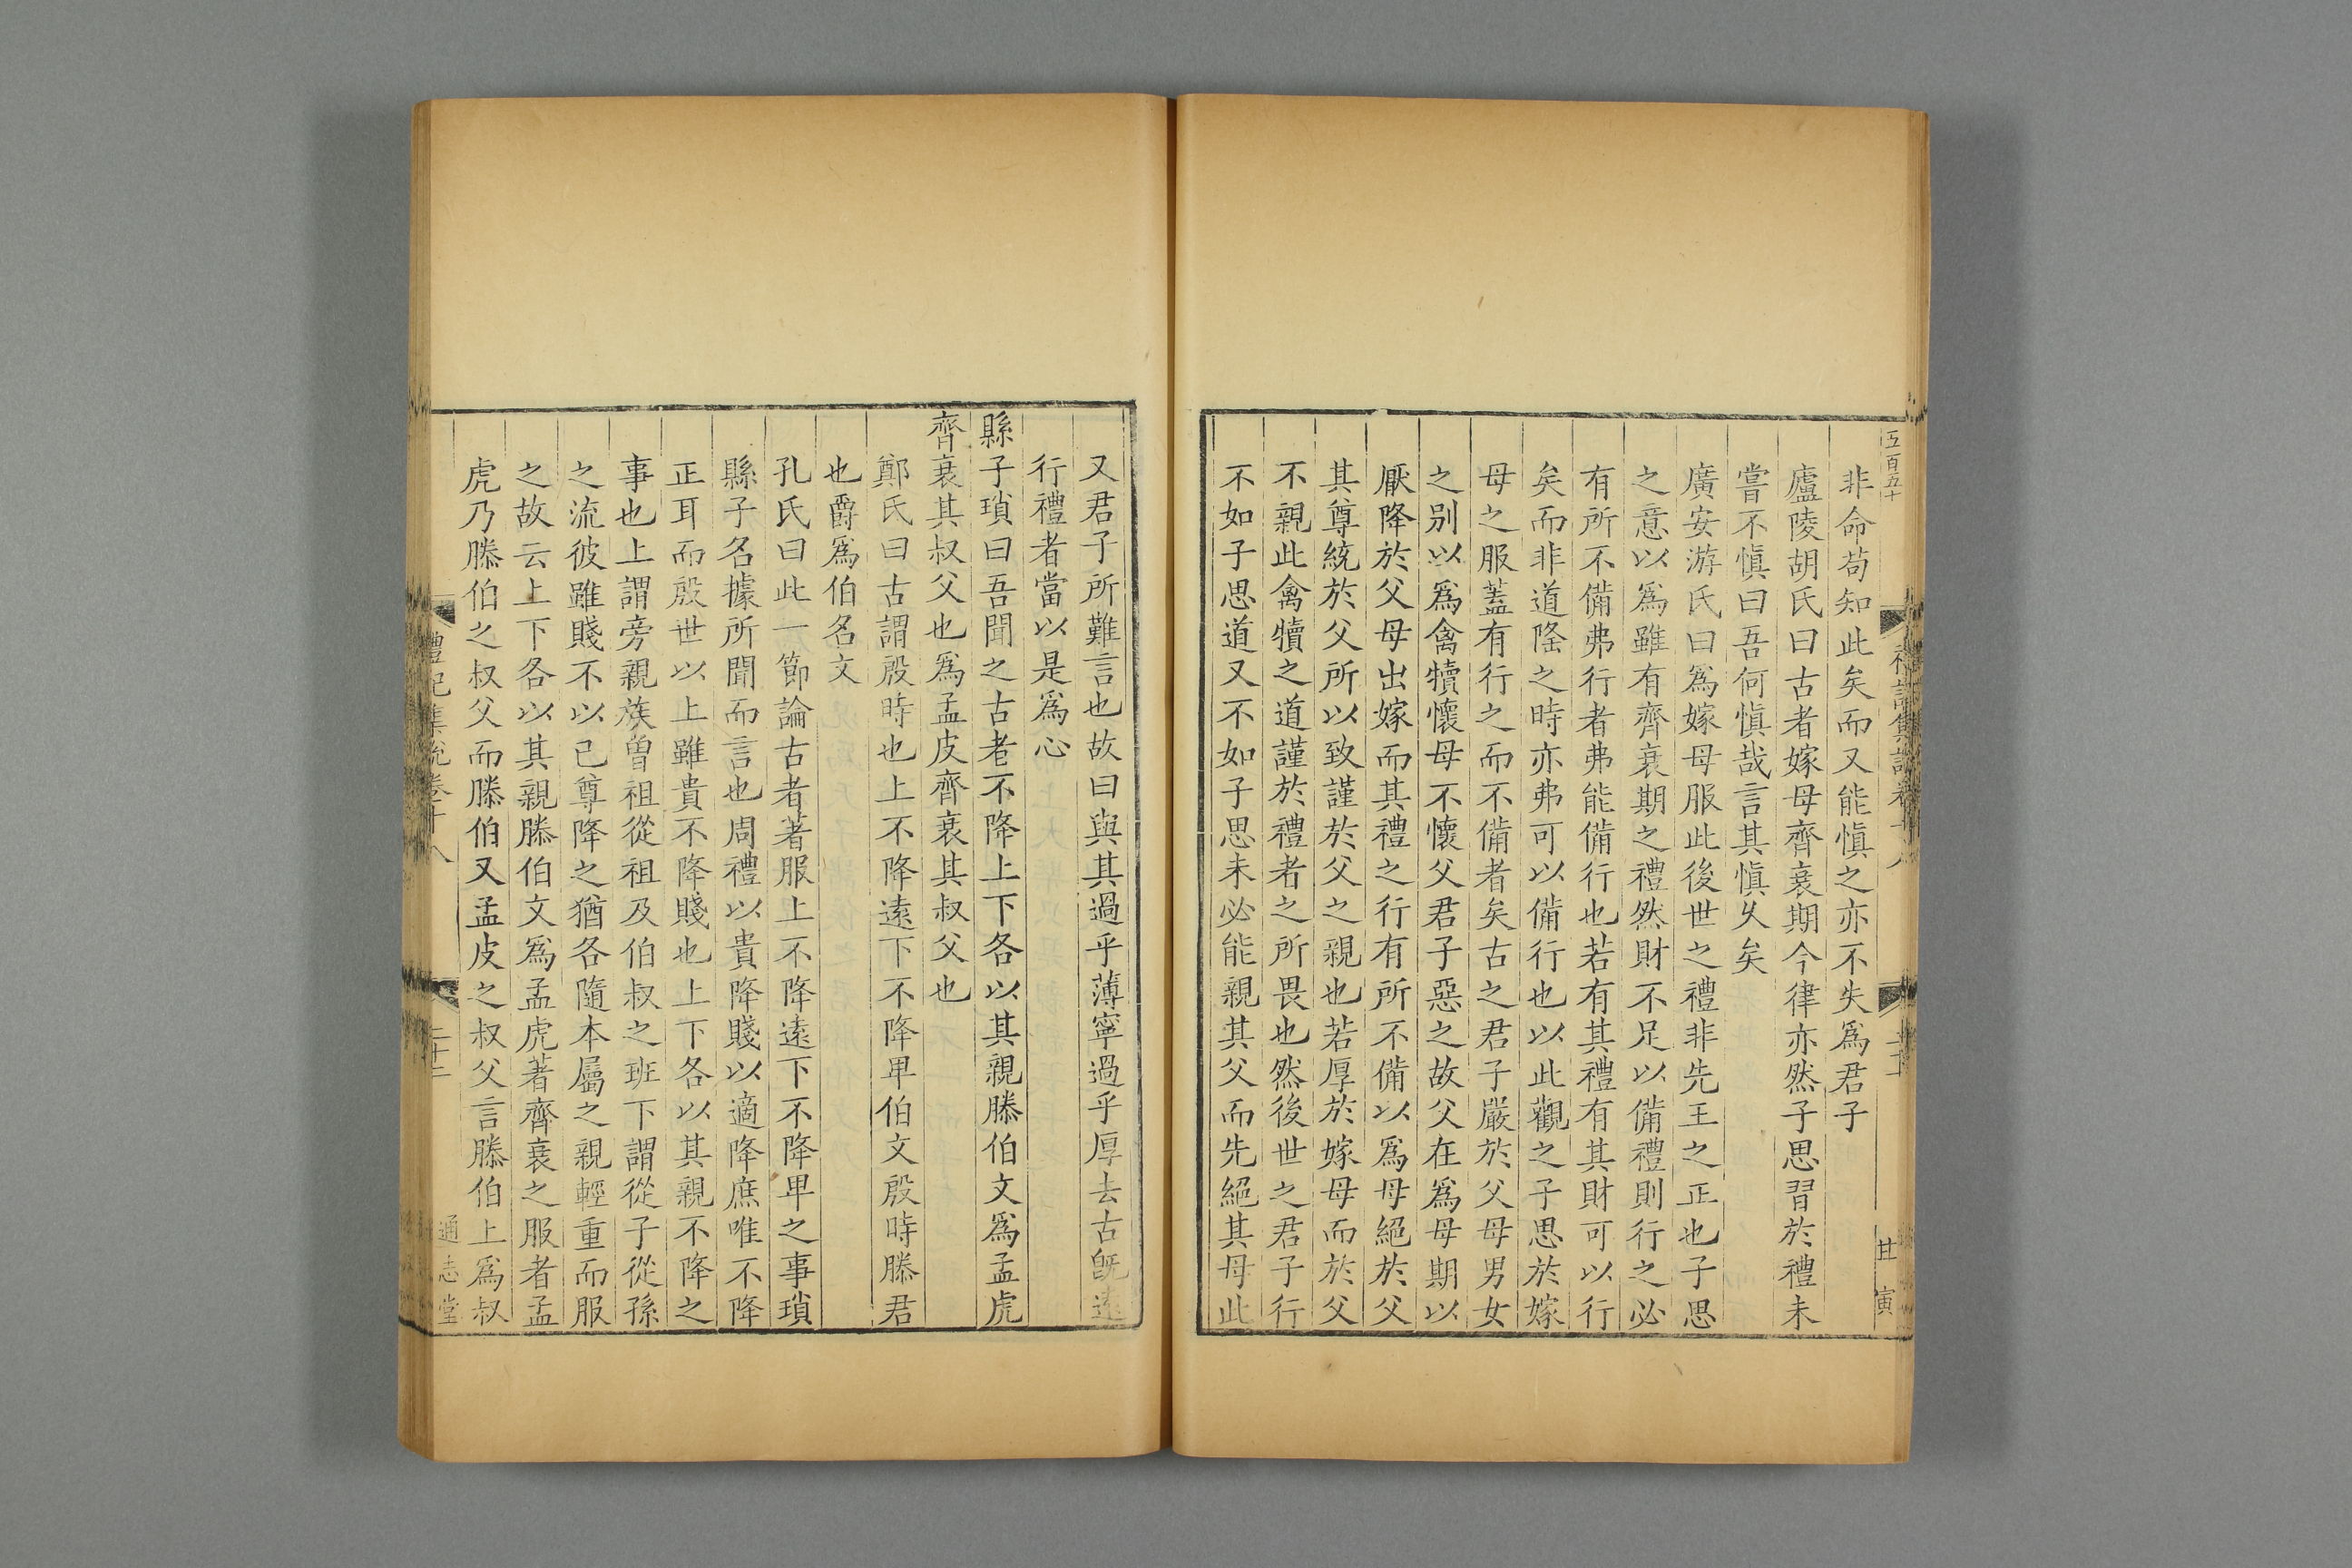 五百五十
禮記集說卷十八
甘寅
非命苟知此矣而又能愼之亦不失爲君子
廬陵胡氏曰古者嫁母齊衰期今律亦然子思習於禮未
嘗不愼曰吾何愼哉言其愼乆矣
廣安游氏曰爲嫁母服此後世之禮非先王之正也子思
之意以爲雖有齊衰期之禮然財不足以備禮則行之必
有所不備弗行者弗能備行也若有其禮有其財可以行
矣而非道隆之時亦弗可以備行也以此觀之子思於嫁
母之服蓋有行之而不備者矣古之君子嚴於父母男女
之別以爲禽犢懷母不懷父君子惡之故父在爲母期以
厭降於父母出嫁而其禮之行有所不備以爲母絕於父
其尊統於父所以致謹於父之親也若厚於嫁母而於父
不親此禽犢之道謹於禮者之所畏也然後世之君子行
不如子思道又不如子思未必能親其父而先絕其母此
又君子所難言也故曰與其過乎薄寧過乎厚去古旣遠
行禮者當以是爲心
縣子瑣曰吾聞之古老不降上下各以其親滕伯文爲孟虎
齊衰其叔父也爲孟皮齊衰其叔父也
鄭氏曰古謂殷時也上不降遠下不降卑伯文殷時滕君
也爵爲伯名文
孔氏曰此一節論古者著服上不降遠下不降卑之事瑣
縣子名據所聞而言也周禮以貴降賤以適降庶唯不降
正耳而殷世以上雖貴不降賤也上下各以其親不降之
事也上謂旁親族曾祖從祖及伯叔之班下謂從子從孫
之流彼雖賤不以己尊降之猶各隨本屬之親輕重而服
之故云上下各以其親滕伯文爲孟虎著齊衰之服者孟
虎乃滕伯之叔父而滕伯又孟皮之叔父言滕伯上爲叔
禮記集說卷十八
二十二
通志堂